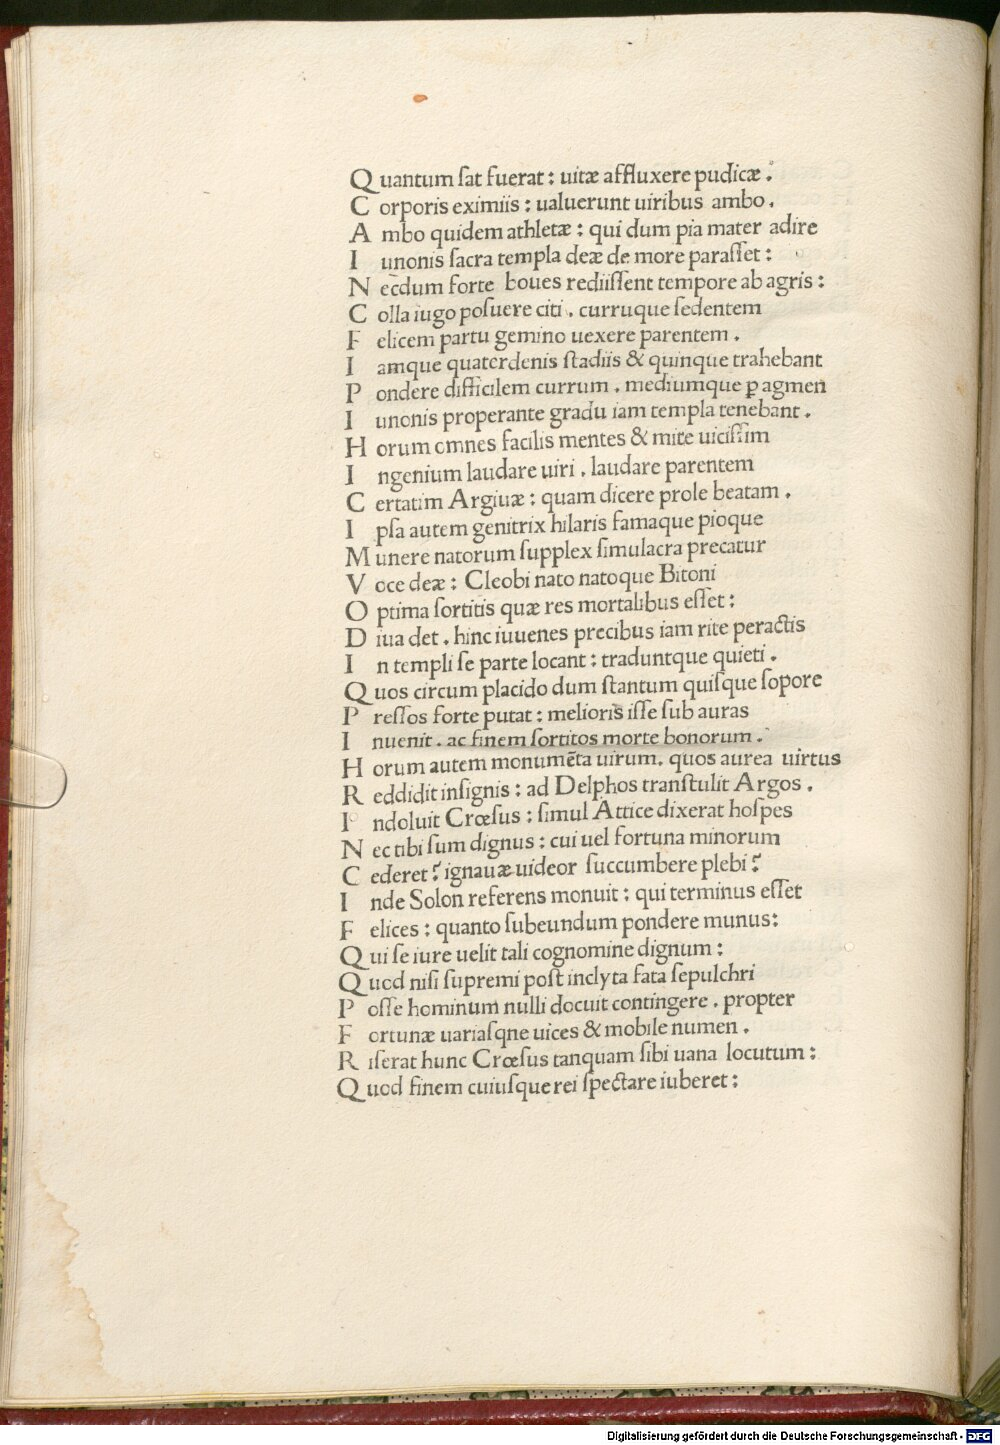 Quantum ſat fuerat : uitæ affluxere pudicæ .
Corporis eximiis : ualuerunt uiribus ambo .
Ambo quidem athletæ : qui dum pia mater adire
Iunonis ſacra templa deæ de more paraſſet :
Necdum forte boues rediiſſent tempore ab agris :
Colla iugo poſuere citi . curruque ſedentem
Felicem partu gemino uexere parentem .
Iamque quaterdenis ſtadiis & quinque trahebant
Pondere difficilem currum . mediumque ꝑ agmen
Iunonis properante gradu iam templa tenebant .
Horum omnes facilis mentes & mite uiciſſim
Ingenium laudare uiri . laudare parentem
Certatim Argiuæ : quam dicere prole beatam .
Ipſa autem genitrix hilaris famaque pioque
Munere natorum ſupplex ſimulacra precatur
Voce deæ : Cleobi nato natoque Bitoni
Optima ſortitis quæ res mortalibus eſſet :
Diua det . hinc iuuenes precibus iam rite peractis
In templi ſe parte locant : traduntque quieti .
Quos circum placido dum ſtantum quiſque ſopore
Preſſos forte putat : melioris iſſe ſub auras
Inuenit . ac finem ſortitos morte bonorum .
Horum autem monumēta uirum . quos aurea uirtus
Reddidit inſignis : ad Delphos tranſtulit Argos .
Indoluit Crœſus : ſimul Attice dixerat hoſpes
Nec tibi ſum dignus : cui uel fortuna minorum
Cederet ? ignauæ uideor ſuccumbere plebi ?
Inde Solon referens monuit : qui terminus eſſet
Felices : quanto ſubeundum pondere munus :
Qui ſe iure uelit tali cognomine dignum :
Quod niſi ſupremi poſt inclyta fata ſepulchri
Poſſe hominum nulli docuit contingere . propter
Fortunæ uariaſqne uices & mobile numen .
Riſerat hunc Crœſus tanquam ſibi uana locutum :
Quod finem cuiuſque rei ſpectare iuberet :
Digitalisierung gefördert durch die Deutsche Forschungsgemeinschaft - DFG